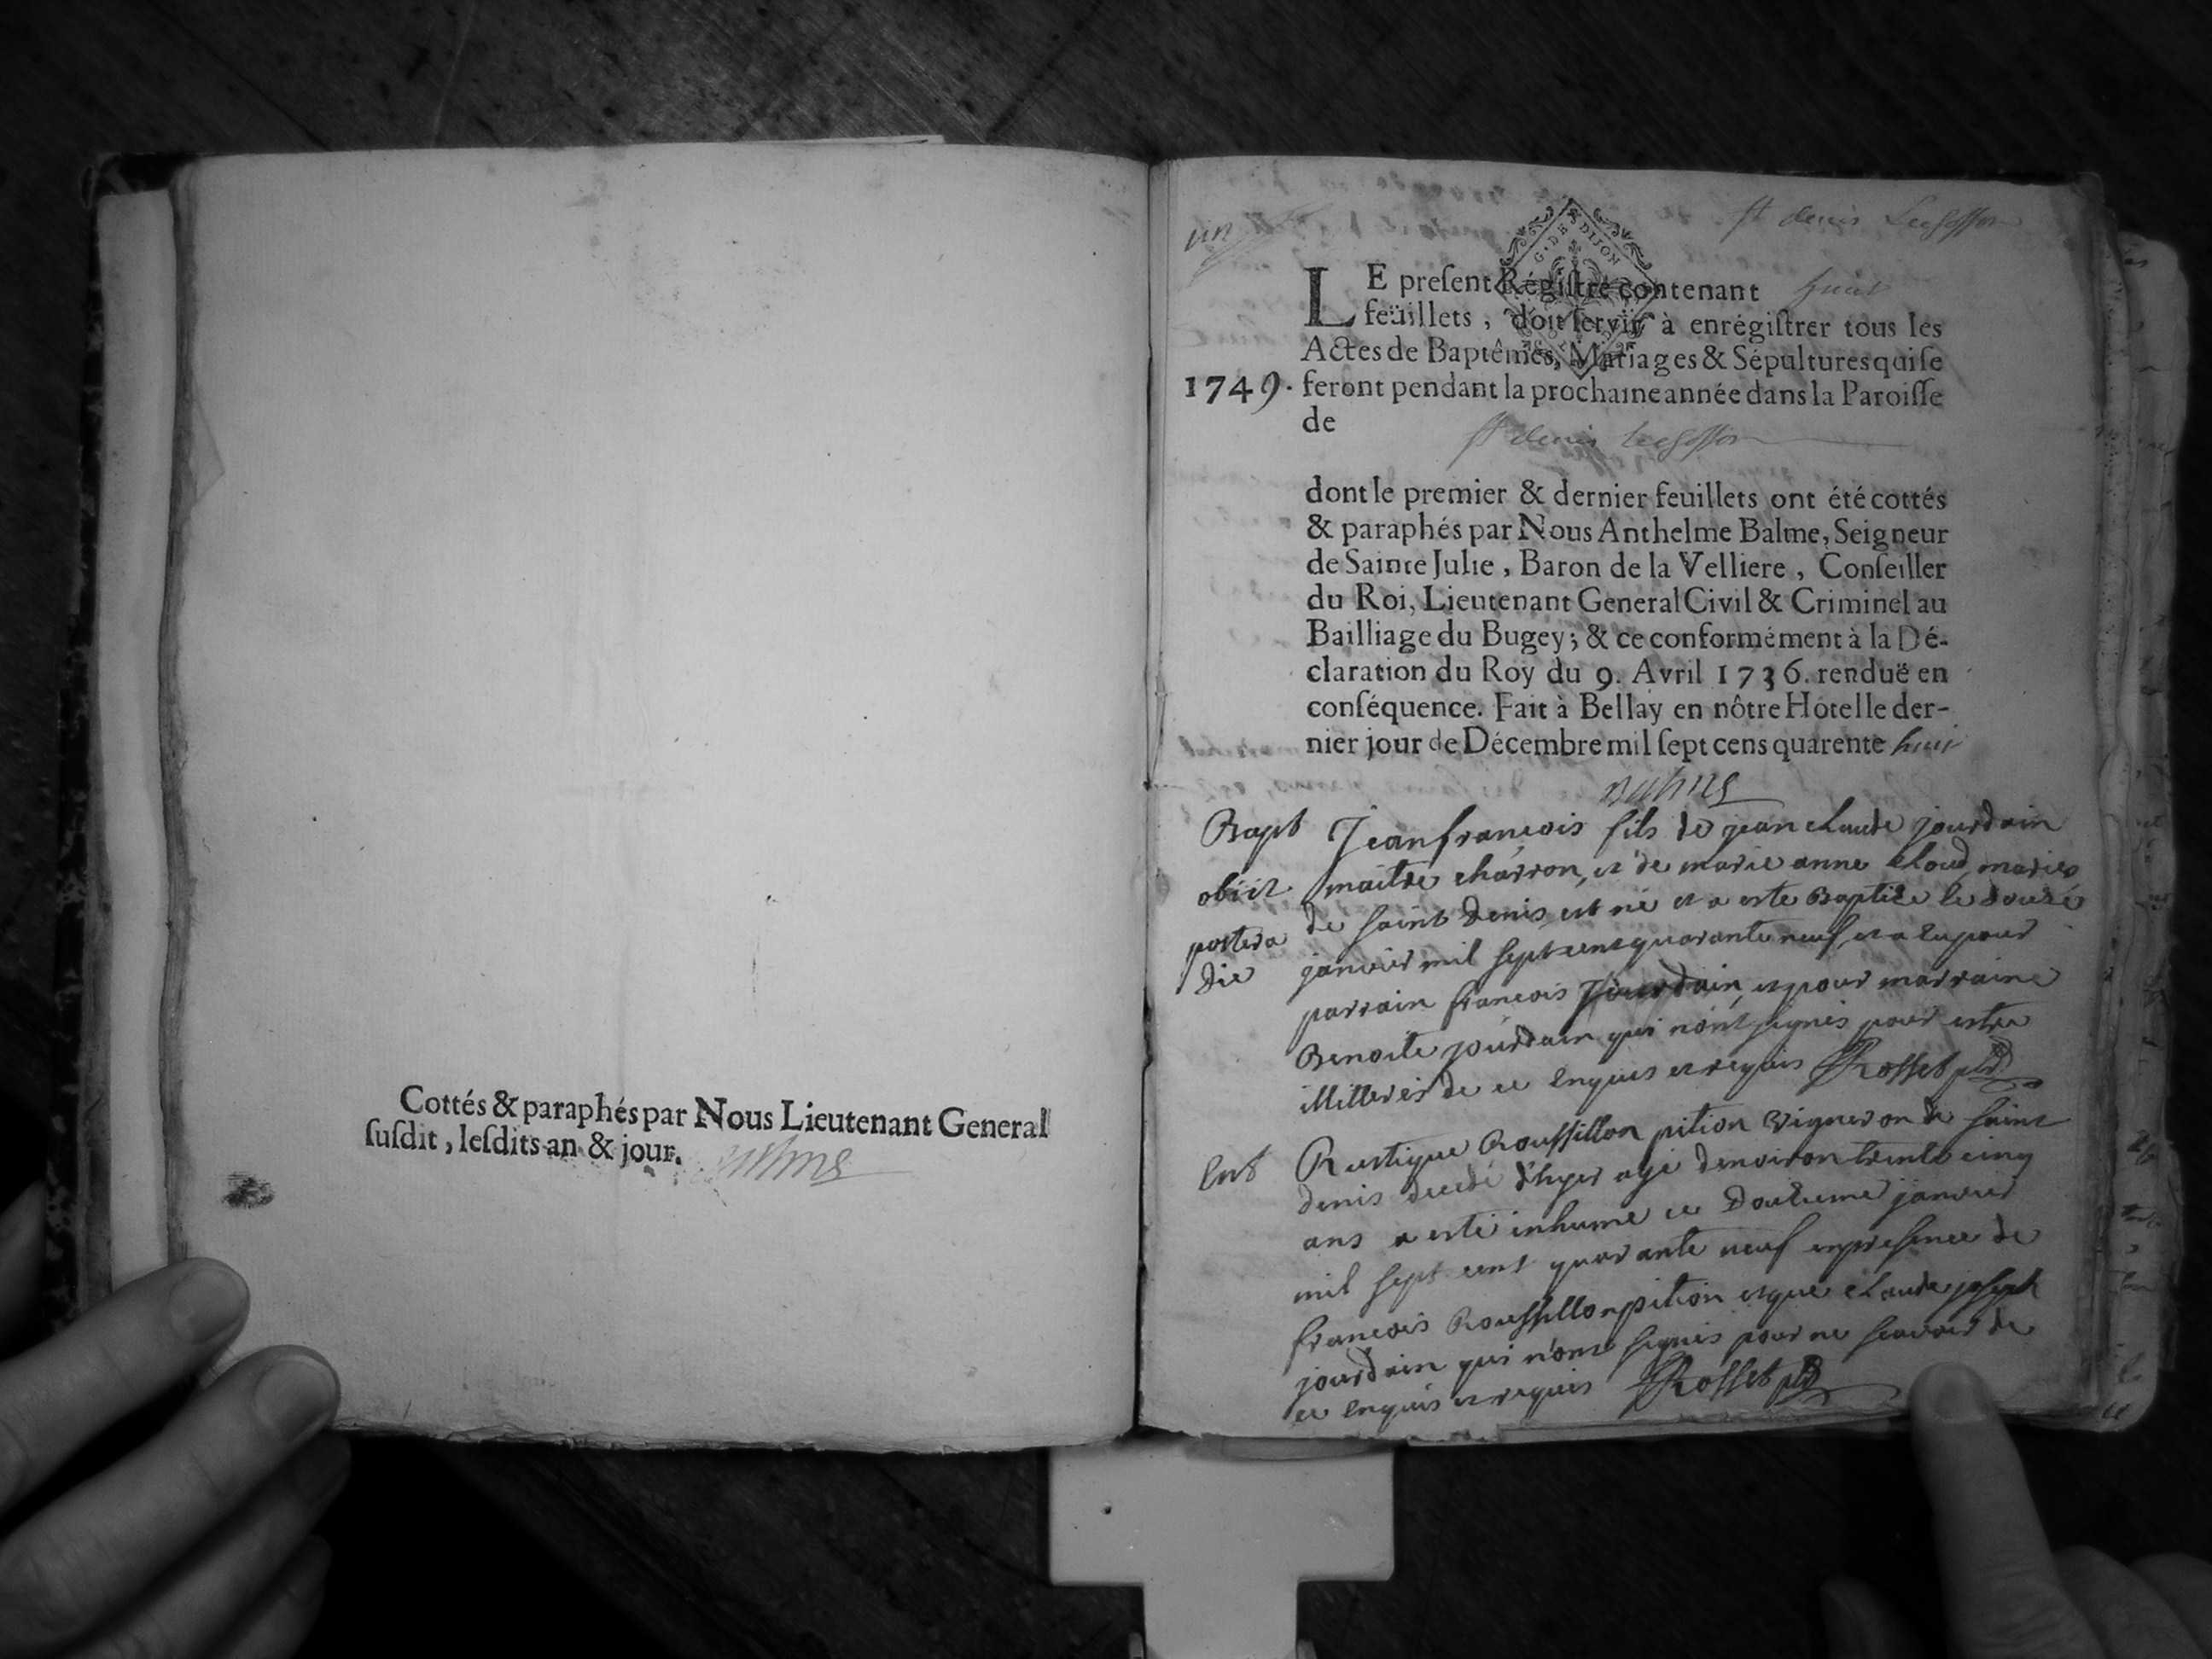 Cottés & paraphés par Nous Lieutenant General
ſuſdit, leſdits an & jour.
un
G. DE DIJON
st denis
LE preſent Régiſtre contenant huit
feüillets, doit ſervir à enrégiſtrer tous les
Actes de Baptêmes, Mariages & Sépultures qui ſe
1749. feront pendant la prochaine année dans la Paroiſſe
de
st denis
dont le premier & dernier feuillets ont été cottés
& paraphés par Nous Anthelme Balme, Seigneur
de Sainte Julie, Baron de la Velliere, Conſeiller
du Roi, Lieutenant General Civil & Criminel au
Bailliage du Bugey; & ce conformément à la Dé-
claration du Roy du 9. Avril 1736. renduë en
conſéquence. Fait à Bellay en nôtre Hôtel le der-
nier jour de Décembre mil ſept cens quarente huit
Balme
Bapt
obiit
postera
die
Jeanfrancois fils de jean claude jourdain
maitre charron, et de marie anne cloud mariés
de saint Denis est né et a esté Baptisé le douze
janvier mil sept cent quarante neuf, et a eu pour
parrain francois Jourdain, et pour marraine
Benoite jourdain qui n'ont signés pour estre
illitterés de ce enquis et requis Rosset
Ent
Rustique Roussillon pition vigneron de saint
denis decedé d'hyer agé d'environ trente cinq
ans a esté inhumé ce Douzieme janvier
mil sept cent quarante neuf en presence de
francois Roussillon pition et que claude joseph
jourdain qui n'ont signés pour ne scavoir de
ce enquis et requis Rosset